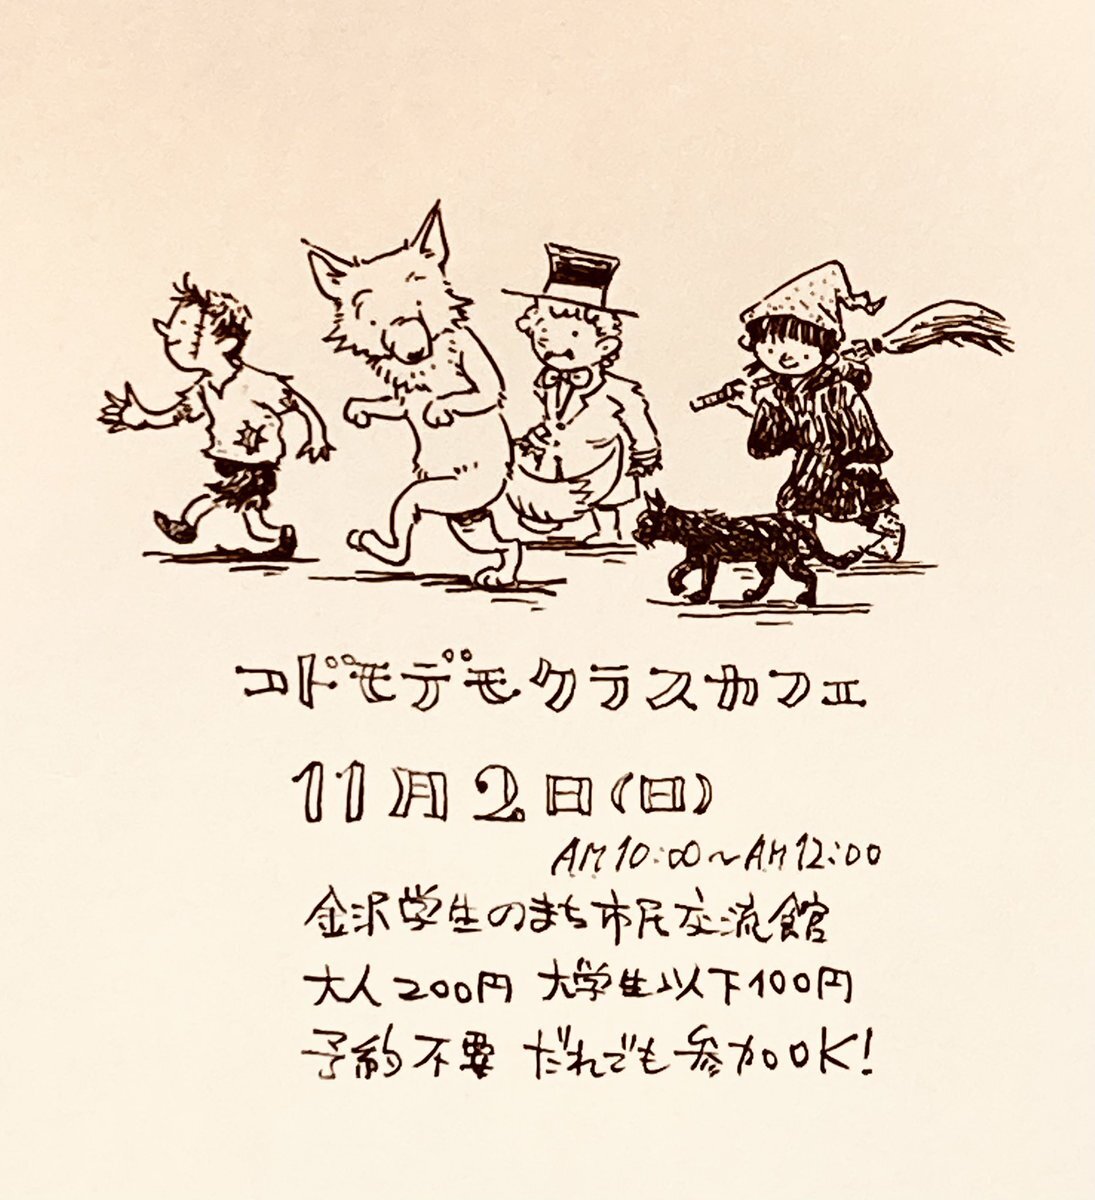 コドモデモクラスカフェ
11月2日(日)
AM10:00~AM12:00
金沢学生のまち市民交流館
大人200円 大学生以下100円
予約不要 だれでも参加OK!